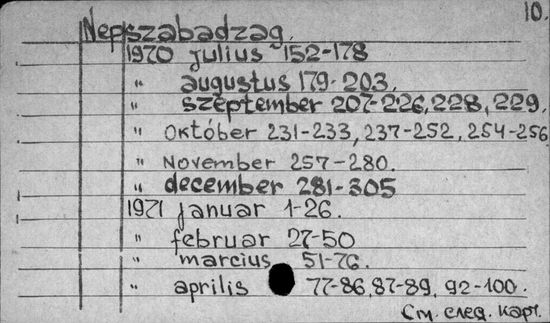 10.
Nepszabadzag.
1970 julius 152-178
" augustus 179-203.
" szeptember 207-226, 228, 229.
" Október 231-233, 237-252, 254-256
" November 257-280.
" december 281-305
1971 januar 1-26.
" februar 27-50
" marcius 51-76.
" aprilis 77-86, 87-89, 92-100.
См. след. карт.